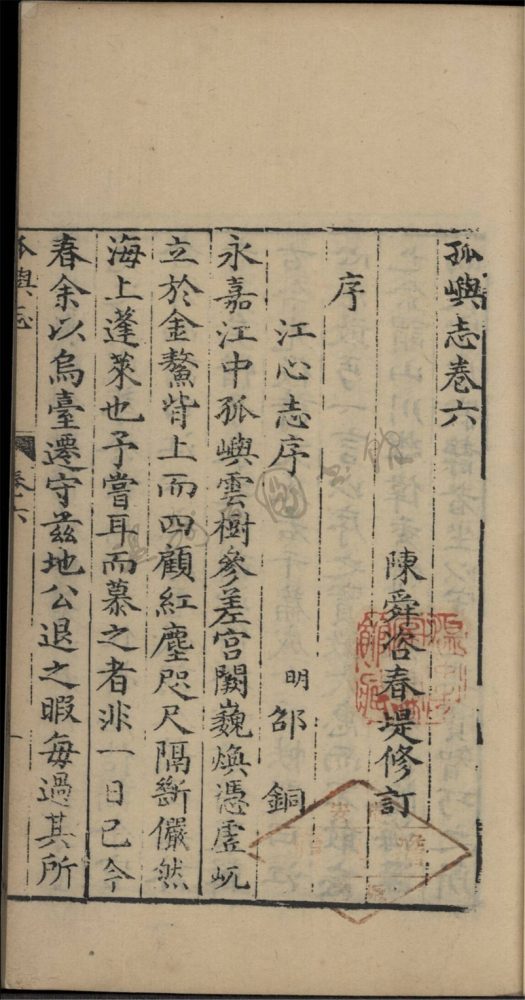 孤嶼志卷六
陳舜咨春堤修訂
序
江心志序
明 邵 銅
永嘉江中孤嶼雲樹參差宫闕巍煥憑虛屼
立於金鰲背上而四顧紅塵咫尺隔斷儼然
海上蓬萊也予嘗耳而慕之者非一日已今
春余以烏臺遷守兹地公退之暇每過其所
孤嶼志
卷六
一